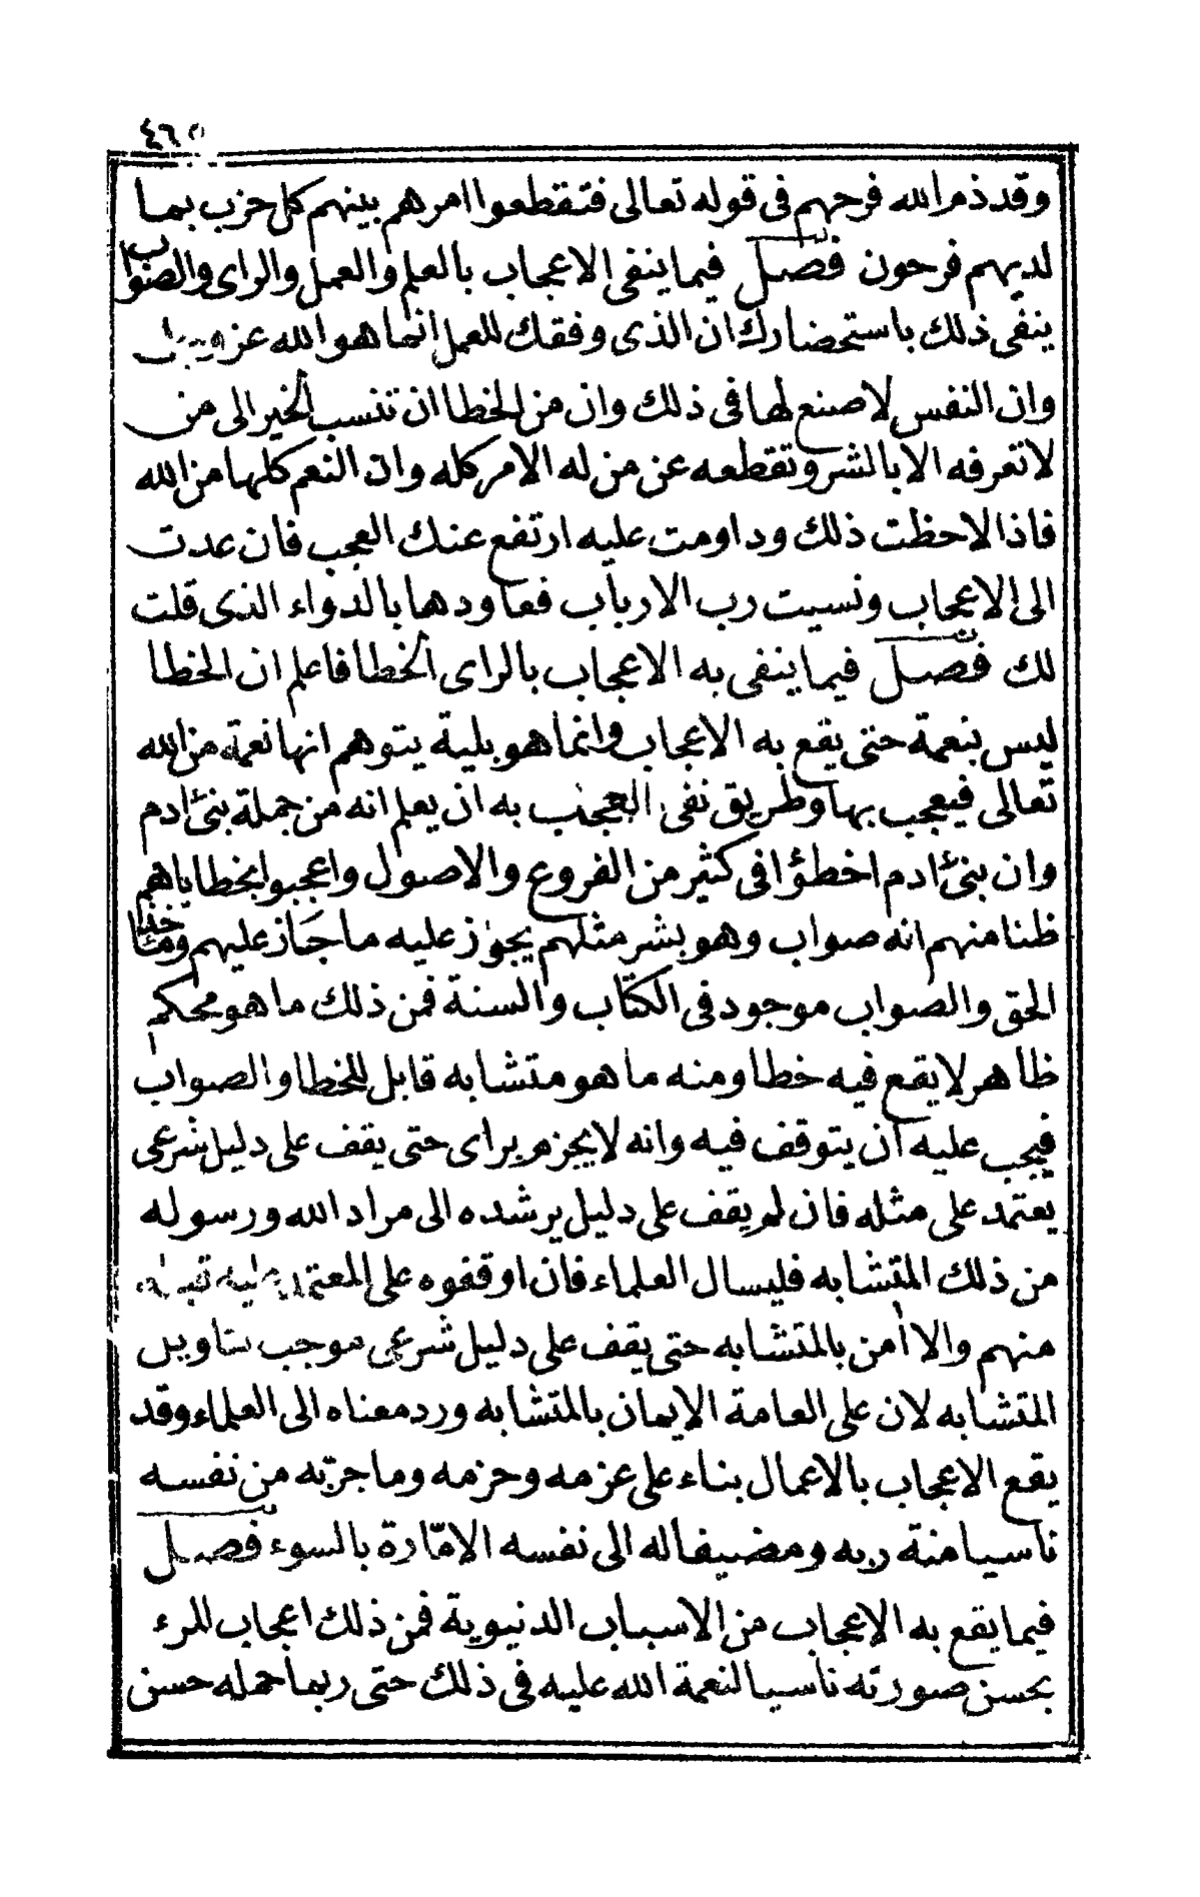 ٤٦٥
وقد ذم الله فرحهم فى قوله تعالى فتقطعوا امرهم بينهم كل حزب بما
لديهم فرحون فصل فيما ينفى الاعجاب بالعلم والعمل والراى والصواب
ينفى ذلك باستحضارك ان الذى وفقك للعمل انما هو الله عز وجل
وان النفس لا صنع لها فى ذلك وان من الخطا ان تنسب الخير الى من
لا تعرفه الا بالشر وتقطعه عن من له الامر كله وان النعم كلها من الله
فاذا لاحظت ذلك وداومت عليه ارتفع عنك العجب فان عدت
الى الاعجاب ونسيت رب الارباب فعاودها بالدواء الذى قلت
لك فصل فيما ينفى به الاعجاب بالراى الخطا فاعلم ان الخطا
ليس بنعمة حتى يقع به الاعجاب وانما هو بلية يتوهم انها نعمة من الله
تعالى فيعجب بها وطريق نفى العجب به ان يعلم انه من جملة بنئ ادم
وان بنئ ادم اخطؤا فى كثير من الفروع والاصول واعجبوا بخطاياهم
ظنا منهم انه صواب وهو بشر مثلهم يجوز عليه ما جاز عليهم وما خذا
الحق والصواب موجود فى الكتاب والسنة فمن ذلك ما هو محكم
ظاهر لا يقع فيه خطا ومنه ما هو متشابه قابل للخطا والصواب
فيجب عليه ان يتوقف فيه وانه لا يجزم براى حتى يقف على دليل شرعى
يعتمد على مثله فان لم يقف على دليل يرشده الى مراد الله ورسوله
من ذلك المتشابه فليسال العلماء فان اوقفوه على المعتمد عليه قبله
منهم والا أمن بالمتشابه حتى يقف على دليل شرعى موجب لتاويل
المتشابه لان على العامة الايمان بالمتشابه ورد معناه الى العلماء وقد
يقع الاعجاب بالاعمال بناء على عزمه وحزمه وما جربه من نفسه
ناسيا منة ربه ومضيفا له الى نفسه الامّارة بالسوء فصل
فيما يقع به الاعجاب من الاسباب الدنيوية فمن ذلك اعجاب المرء
بحسن صورته ناسيا لنعمة الله عليه فى ذلك حتى ربما حمله حسن